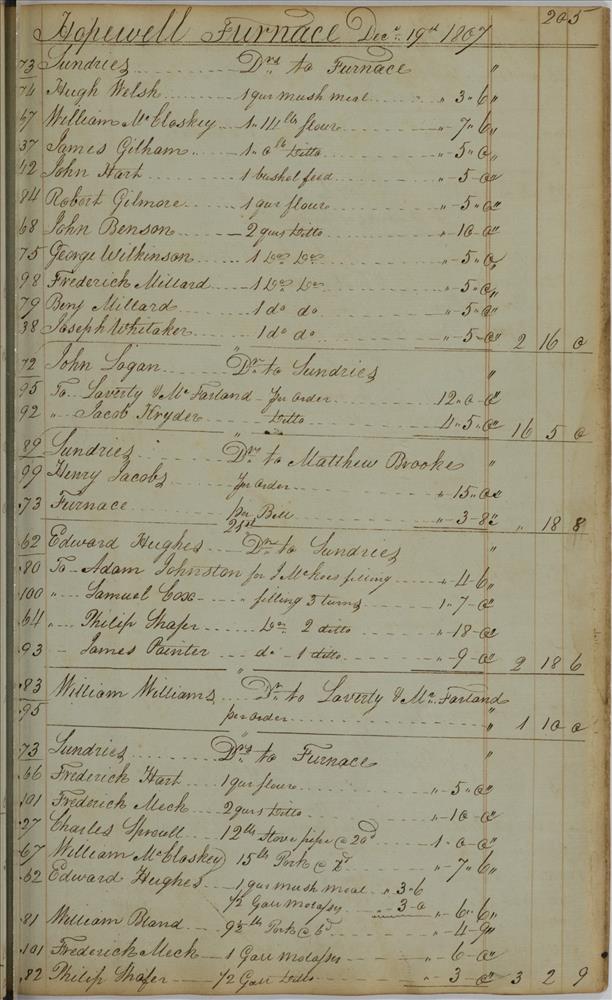 205
Hopewell Furnace Decr. 19th 1807
73 Sundries Drs to Furnace "
74 Hugh Welsh 1 qur mush meal " 3 " 6 "
67 William McCloskey 1 " 14 lbs flour " 7 " 6 "
37 James Gilham 1 " 0 lb ditto " 5 " 0 "
42 John Hart 1 bushel feed " 5 - 0 "
84 Robert Gilmore 1 qur flour " 5 " 0 "
68 John Benson 2 qurs ditto " 10 - 0 "
75 George Wilkinson 1 Do Do " 5 " 0 "
98 Frederick Millard 1 Do Do " 5 " 0 "
79 Benj Millard 1 do do " 5 - 0 "
38 Joseph Whitaker 1 do do " 5 - 0 " 2 16 0
72 John Logan Dr. to Sundries "
95 To Laverty & McFarland pr order 12 " 0 - 0 "
92 " Jacob Kryder ditto 4 " 5 " 0 " 16 5 0
89 Sundries Drs to Matthew Brooke "
99 Henry Jacobs pr order " 15 " 0 "
73 Furnace per Bill " 3 - 8 " " 18 8
21st
62 Edward Hughes Dr. to Sundries "
80 To Adam Johnston for J McKees filling " 4 " 6 "
100 " Samuel Cox " filling 3 turns 1 " 7 - 0 "
64 " Philip Shafer Do. 2 ditto " 18 - 0 "
93 - James Painter do - 1 ditto " 9 - 0 " 2 18 6
83 William Williams Dr. to Laverty & McFarland
95 per order " 1 10 0
73 Sundries Drs to Furnace "
66 Frederick Hart 1 qur flour " 5 " 0 "
101 Frederick Meck 2 qurs ditto " 10 - 0 "
27 Charles Sprowll 12 lbs stove pipe @ 20d 1 " 0 - 0 "
67 William McCloskey 15 lbs Pork @ " 7 " 6 "
62 Edward Hughes 1 qur mush meal " 3 " 6
1/2 Gall molasses " 3 - 0 " 6 " 6 "
81 William Bland 9 1/2 lb Pork @ 6d " 4 - 9 "
101 Frederick Meck 1 Gall molasses " 6 - 0 "
82 Philip Shafer 1/2 Gall ditto " 3 - 0 " 3 2 9